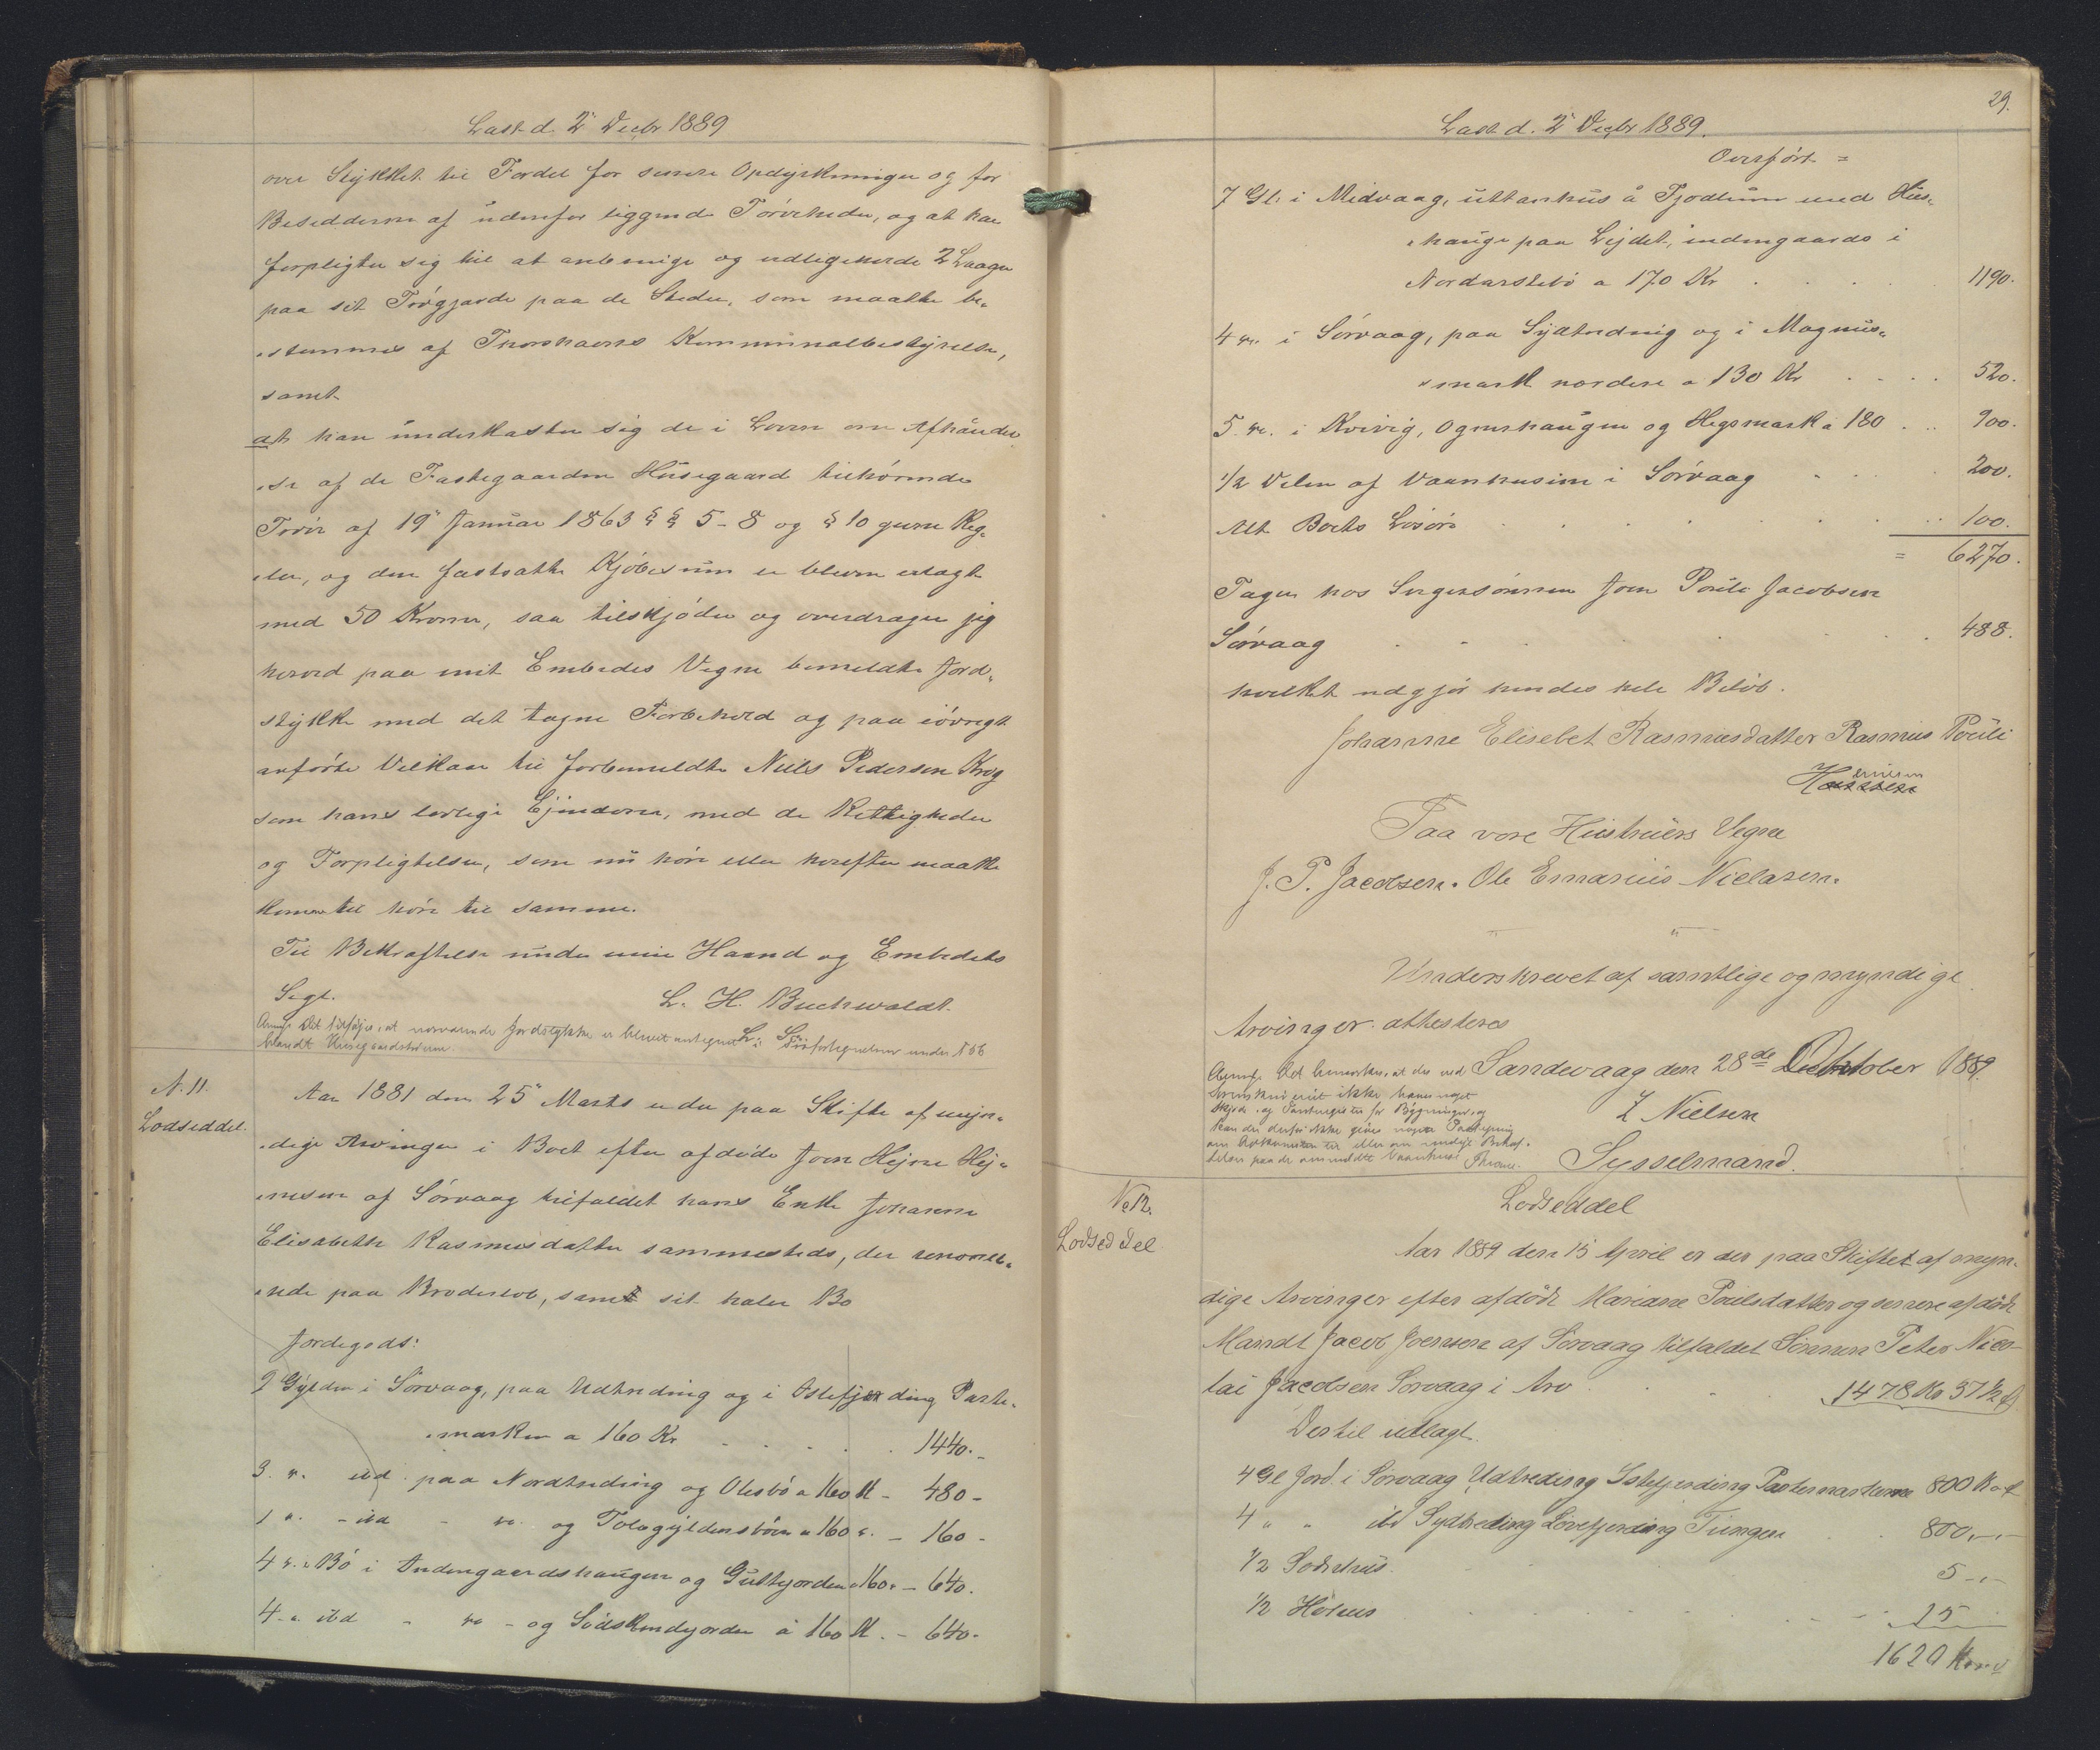 Læst d. 2' Decbr 1889
over Stykket til Fordel for senere Opdyrkninger og for
Besidderne af udenfor liggende Tørveheder, og at han
forpligter sig til at anbringe og vedligeholde 2 Laager
paa sit Trøgjærde paa de Steder, som maatte be-
stemmes af Thorshavns Kommunalbestyrelse,
samt
at han underkaster sig de i Loven om Afhændel-
se af de Fæstegaarden Husegaard tilhørende
Trøir af 19' Januar 1863 §§ 5-8 og § 10 givne Reg-
ler, og den fastsatte Kjøbesum er bleven erlagt
med 50 Kroner, saa tilskjøder og overdrager jeg
herved paa mit Embedes Vegne bemeldte Jord-
stykke med det tagne Forbehold og paa iøvrigt
anførte Vilkaar til forbemeldte Niels Pedersen Krog
som hans lovlige Ejendom, med de Rettigheder
og Forpligtelser, som nu høre eller herefter maatte
komme til høre til samme.
Til Bekræftelse under min Haand og Embedets
Segl. L. H. Buchwaldt.
L. S.
Anmk. Det tilføjes, at nærværende Jordstykke er blevet antegnet i Trøfortegnelsen under N 56
blandt Husegaardstrøerne.
N. 11.
Lodseddel.
Aar 1881 den 25' Marts er der paa Skifte af myn-
dige Arvinger i Boet efter afdøde Joen Hejne Hej-
nesen af Sørvaag tilfaldet hans Enke Johanne
Elisabethe Rasmusdatter sammesteds, der
paa Broderlod, samt sit halve Bo
Jordegods:
9 Gylden i Sørvaag, paa Udtreding og i Istefjerding Parte-
marken a 160 Kr . . . . . 1440.-
3. " ibd paa Nordtreding og Olesbø a 160 K - 480 -
1 " - ibd - " og Tologyldensbøen a 160 " - 160 -
4 " i Bø i Indengaardshaugen og Gullejorden a 160 " - 640.
4 - " ibd - " - og Sødskendejorden a 160 K. - 640.
29.
Læst d. 2' Decbr 1889.
Overført =
7 Gl. i Midvaag, uttanhus å Fjødlum med Hus-
hauge paa Lejdet, indengaards i
Nordarstebø a 170 Kr . . . . 1190.
4 " i Sørvaag, paa Sydtreding og i Magnus-
mark nordere a 130 Kr . . . . 520.
5 " i Kvivig, Ognshaugen og Hegsmark a 180 . . 900.
1/2 Delen af Vaanhusine i Sørvaag . . . 200.
Alt Boets Løsøre . . . . . . . . 100.
= 6270.
Tages hos Svigersønnen Joen Poule Jacobsen
Sørvaag . . . . . . . 488.
hvilket udgjør hendes hele Beløb.
Johanne Elisebet Rasmusdatter Rasmus Pouli
Joensen
Hansen
Paa vore Hustruers Vegne
J. P. Jacobsen. Ole Emarius Nielasen.
Underskrevet af samtlige og myndige
Arvinger attesteres
Sandevaag den 28de Oktober 1889.
Z Nielsen
Sysselmand.
Anmk. Det bemærkes, at der ved
ikke haves noget
Skjøde- og Panteregister for Bygninger, og
kan der derfor ikke gives nogen Paategning
om Adkomsten til eller om mulige Behæf-
telser paa de anmeldte Vaanhuse
No 12.
Lodseddel
Lodseddel
Aar 1889 den 15 April er der paa Skiftet af myn-
dige Arvinger efter afdøde Mariane Poulsdatter og senere afdøde
Mandt Jacob Joensen af Sørvaag tilfaldet Sønnen Peter Nico-
lai Jacobsen Sørvaag i Arv . . . 1478 Kr 37 1/2 Ø
Dertil udlagt.
4 Gl Jord i Sørvaag Udtreding Istefjerding Partemarken 800 Kr "
4 " " ibd Sydtreding Løvefjerding Tungen . . 800 " "
1/2 Sodnhus . 5 - "
1/2 Hølus . . . . . . 15 "
1620 Kr "